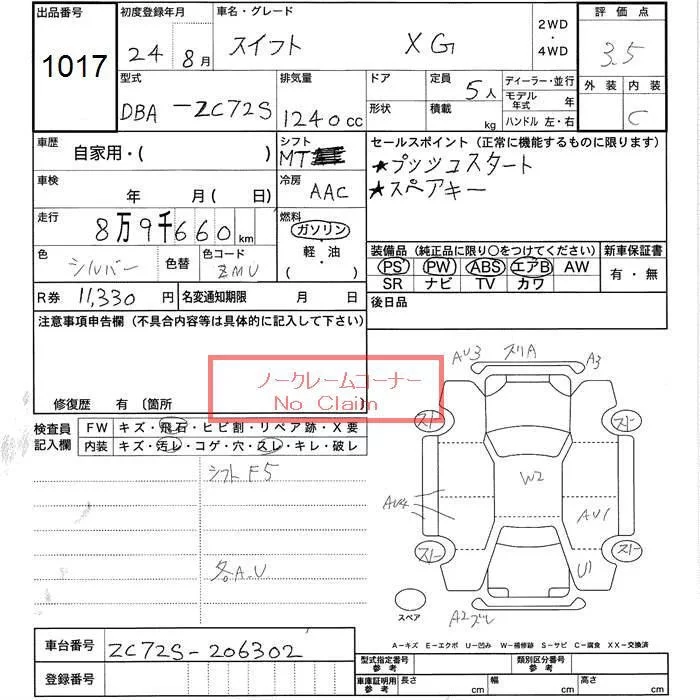 出品番号 初度登録年月 車名・グレード 2WD・4WD 評価点
1017 24 8月 スイフト XG 3.5
型式 排気量 ドア 定員 5人 ディーラー・並行 外装 内装
DBA-ZC72S 1240cc 形状 積載 kg モデル年式 年 ハンドル 左・右 C
車歴 自家用・( ) シフト MT セールスポイント(正常に機能するものに限ります)
★プッシュスタート
★スペアキー
車検 年 月( 日) 冷房 AAC
走行 8万9千660km 燃料 ガソリン 軽・油 ( )
色 シルバー 色替 色コード ZMU
装備品(純正品に限り○をつけてください) 新車保証書
PS PW ABS エアB AW 有・無
SR ナビ TV カワ
R券 11,330円 名変通知期限 月 日 後日品
注意事項申告欄(不具合内容等は具体的に記入して下さい)
ノークレームコーナー
No Claim
修復歴 有 〔箇所 〕
検査員記入欄 FW キズ・飛石・ヒビ割・リペア跡・X要
内装 キズ・汚レ・コゲ・穴・スレ・キレ・破レ
シフトF5
各A.U
AU3 スリA A3
スト スト
W2
AU4 AU1
スト スト
U1
スペア A2スレ
A-キズ E-エクボ U-凹み W-補修跡 S-サビ C-腐食 XX-交換済
車台番号 ZC72S-206302
型式指定番号 参考 類別区分番号 参考
登録番号
車庫証明用 参考 長さ cm 幅 cm 高さ cm